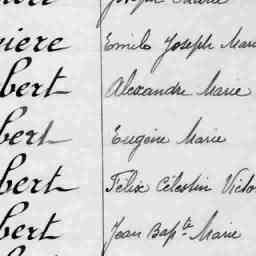 iere Emile Joseph Mari
bert Alexandre Marie
bert Eugène Marie
bert Félix Célestin Victo
bert Jean Bapte Marie